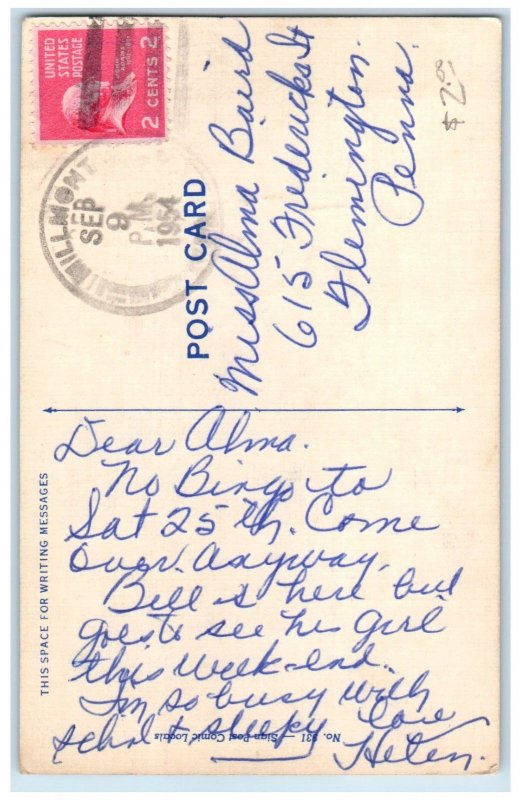 UNITED
STATES
POSTAGE
JOHN
ADAMS
2 CENTS 2
MILLMONT
SEP
9
P.M.
1954
$2.00
POST CARD
Miss Alma Baird
615 Frederick St
Flemington.
Penna.
THIS SPACE FOR WRITING MESSAGES
Dear Alma.
No Bingo to
Sat 25 th. Come
Over. Anyway.
Bill is here but
goes to see his girl
this week-end.
I'm so busy with
school & sleepy Love
Helen.
No. 931 — Sign Post Comic Locals